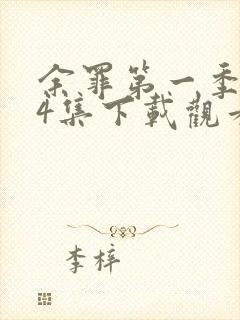 余罪第一季
4集下載觀看
李梓